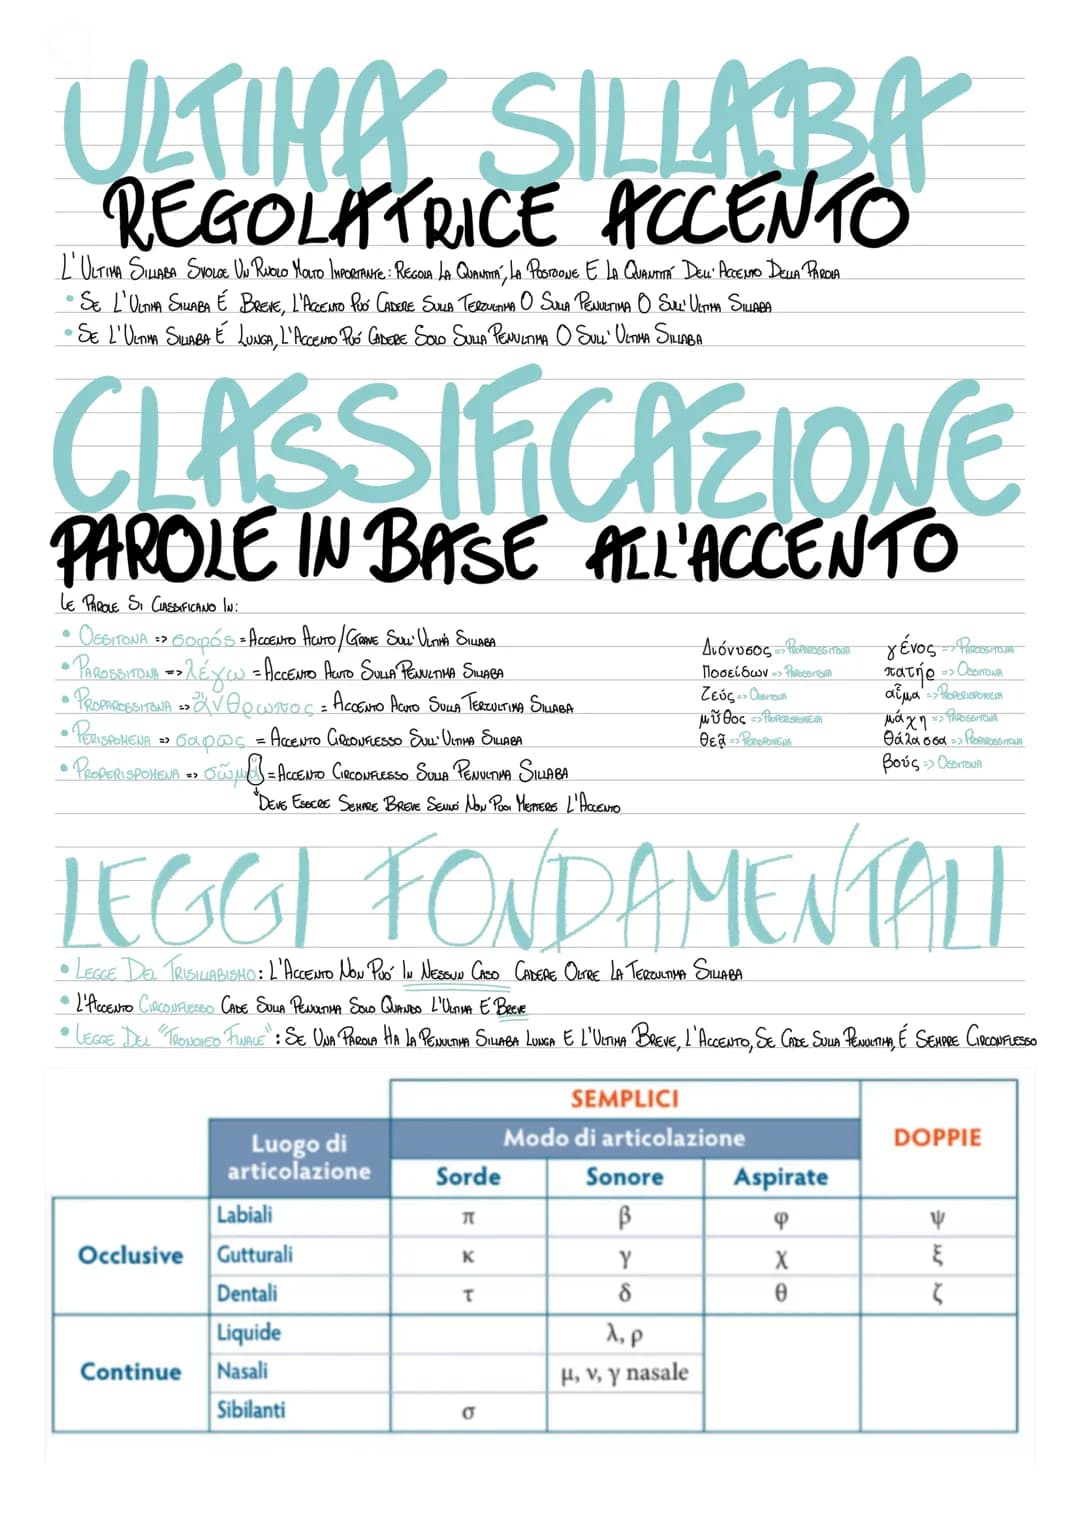 ULTIMA SILLABA
REGOLATRICE ACCENTO
L'ULTIMA SILLABA SVOLGE UN RUOLO MOLTO IMPORTANTE: REGOLA LA QUANTITÀ, LA POSIZIONE E LA QUANTITÀ DELL'ACCENTO DELLA PAROLA
• SE L'ULTIMA SILLABA É BREVE, L'ACCENTO PUÓ CADERE SULLA TERZULTIMA O SULLA PENULTIMA O SULL'ULTIMA SILLABA
• SE L'ULTIMA SILLABA É LUNGA, L'ACCENTO PUÓ CADERE SOLO SULLA PENULTIMA O SULL'ULTIMA SILLABA
CLASSIFICAZIONE
PAROLE IN BASE ALL'ACCENTO
LE PAROLE SI CLASSIFICANO IN:
• OSSITONA => σοφός = ACCENTO ACUTO/GRAVE SULL'ULTIMA SILLABA
• PAROSSITONA => λέγω = ACCENTO ACUTO SULLA PENULTIMA SILLABA
• PROPAROSSITONA => ἄνθρωπος = ACCENTO ACUTO SULLA TERZULTIMA SILLABA
• PERISPOMENA => σαφῶς = ACCENTO CIRCONFLESSO SULL'ULTIMA SILLABA
• PROPERISPOMENA => σῶμα = ACCENTO CIRCONFLESSO SULLA PENULTIMA SILLABA
DEVE ESSERE SEMPRE BREVE SENNÓ NON PUOI METTERE L'ACCENTO
Διόνυσος => PROPAROSSITONA
Ποσείδων => PAROSSITONA
Ζεύς => OSSITONA
μῦθος => PROPERISPOMENA
θεᾶ => PERISPOMENA
γένος => PAROSSITONA
πατήρ => OSSITONA
αἷμα => PROPERISPOMENA
μάχη => PAROSSITONA
θάλασσα => PROPAROSSITONA
βούς => OSSITONA
LEGGI FONDAMENTALI
• LEGGE DEL TRISILLABISMO: L'ACCENTO NON PUÓ IN NESSUN CASO CADERE OLTRE LA TERZULTIMA SILLABA
• L'ACCENTO CIRCONFLESSO CADE SULLA PENULTIMA SOLO QUANDO L'ULTIMA É BREVE
• LEGGE DEL "TRONCHEO FINALE": SE UNA PAROLA HA LA PENULTIMA SILLABA LUNGA E L'ULTIMA BREVE, L'ACCENTO, SE CADE SULLA PENULTIMA, É SEMPRE CIRCONFLESSO
SEMPLICI
DOPPIE
Luogo di articolazione
Modo di articolazione
Sorde Sonore Aspirate
Occlusive
Labiali π β φ ψ
Gutturali κ γ χ ξ
Dentali τ δ θ ζ
Continue
Liquide λ, ρ
Nasali μ, ν, γ nasale
Sibilanti σ